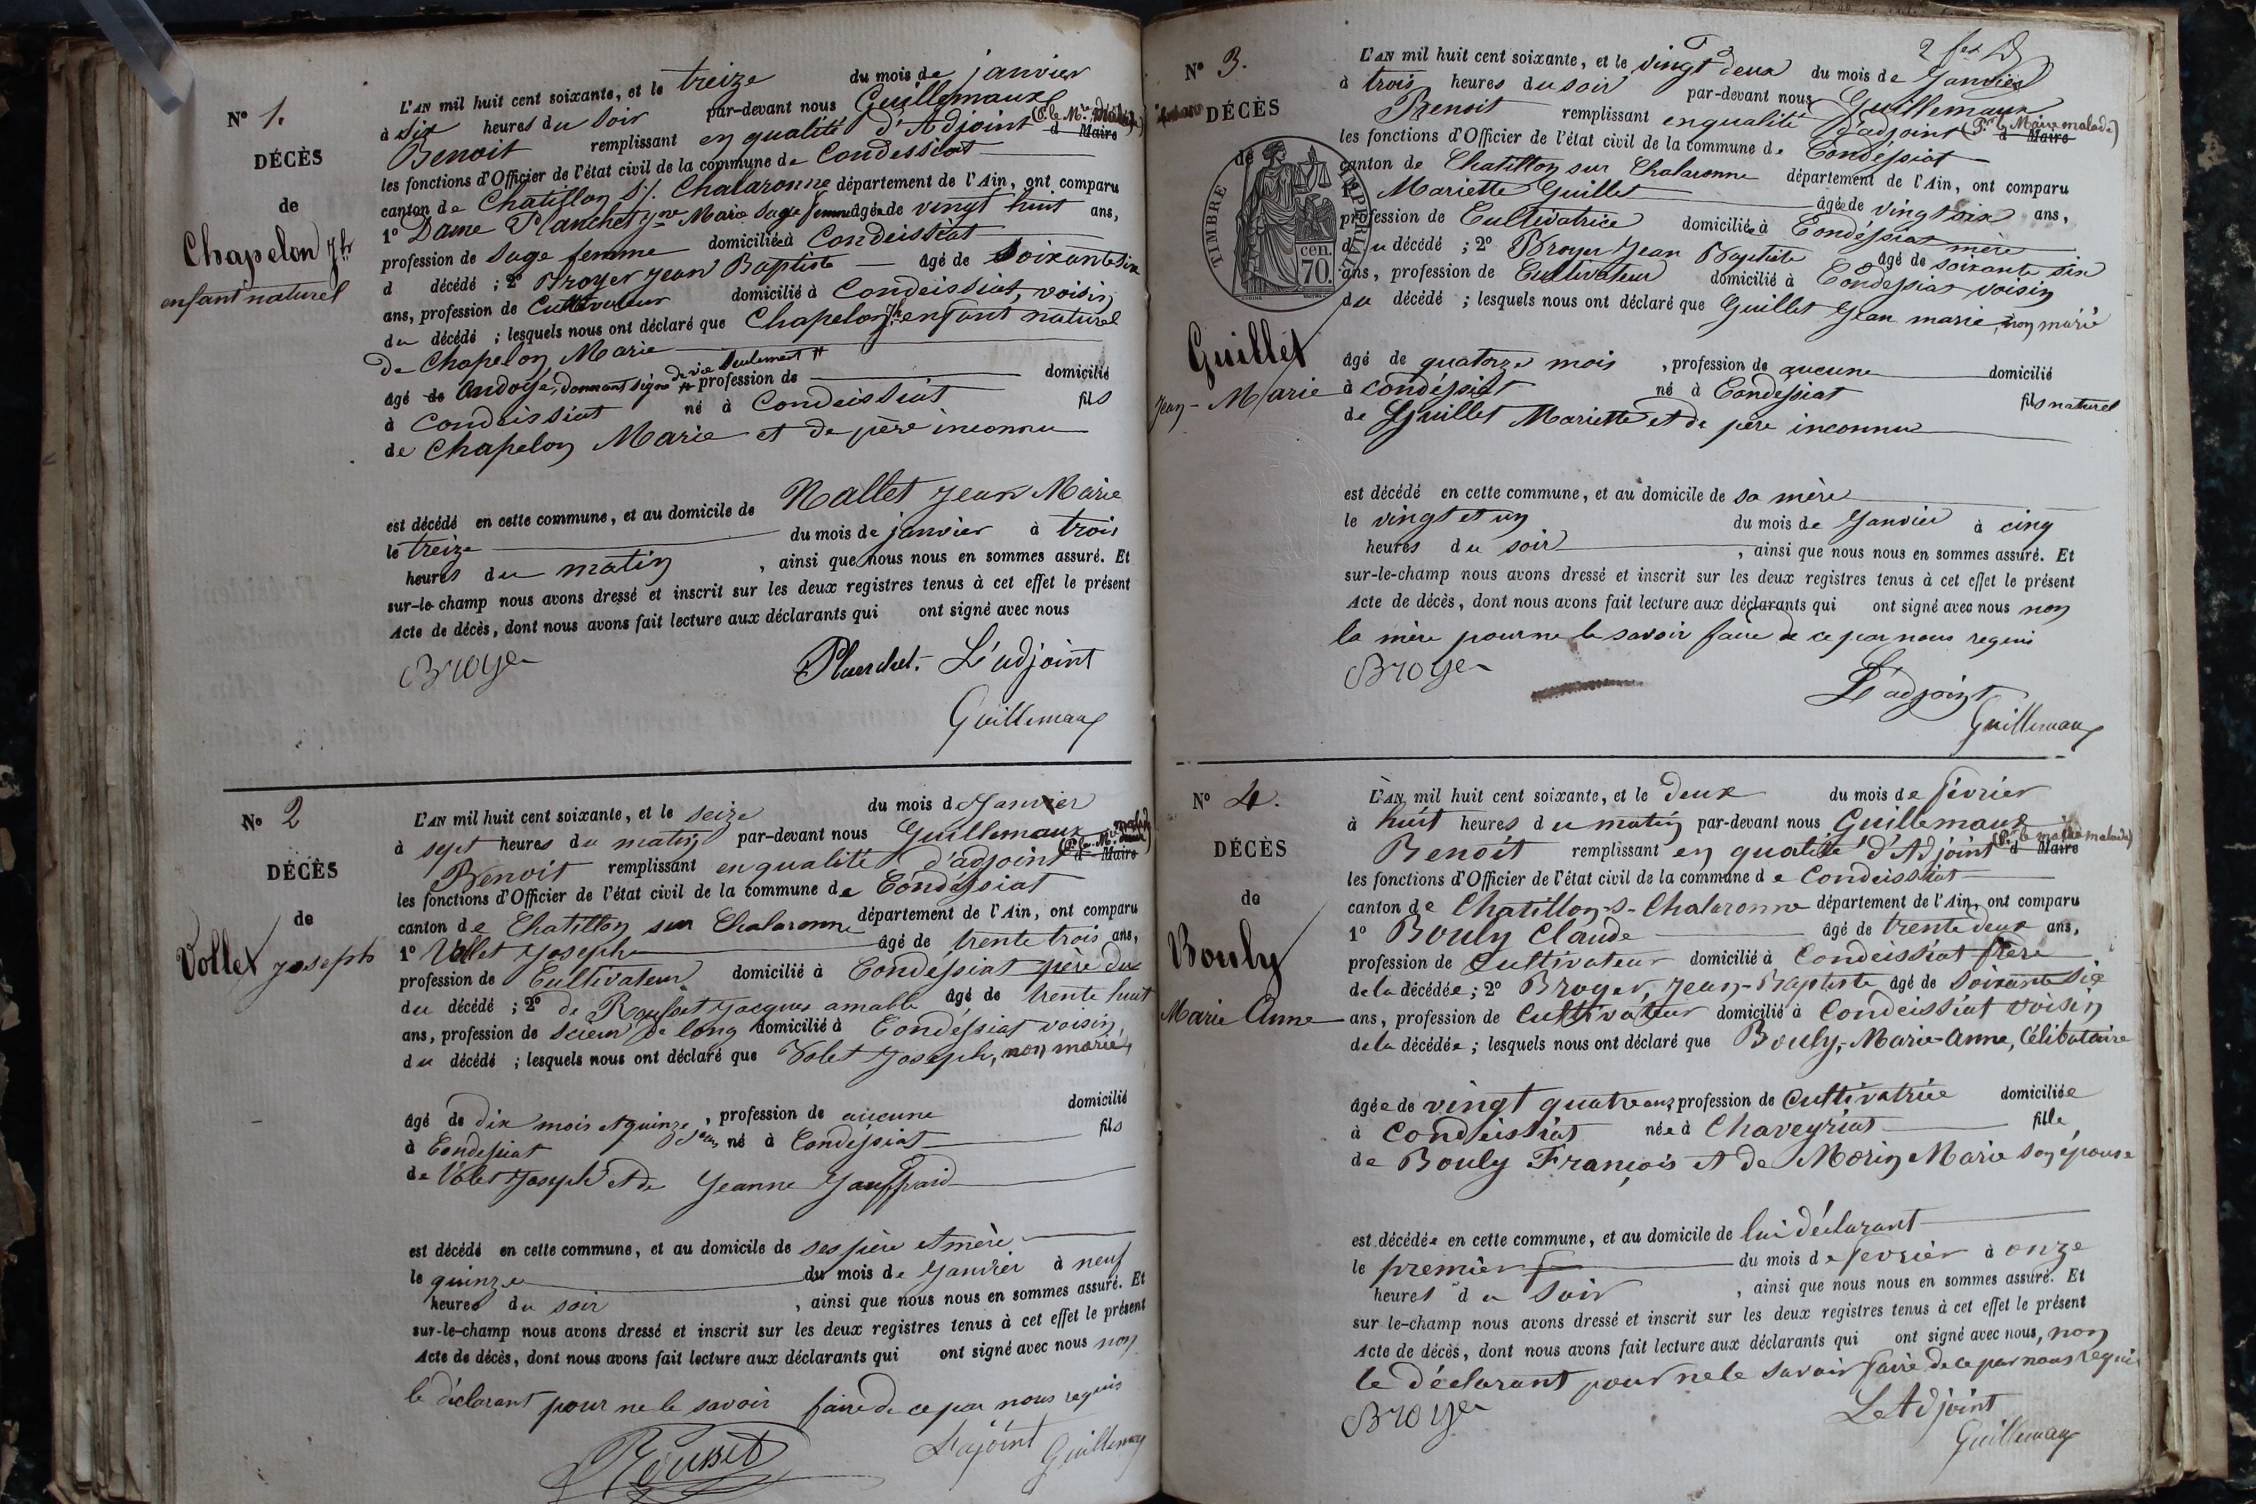 N° 1.
DÉCÈS
de
Chapelon
enfant naturel
L'AN mil huit cent soixante, et le treize du mois de janvier
à six heures du soir par-devant nous Guillemaux
Benoit remplissant en qualité d'Adjoint (P. le Mre malade) d Maire
les fonctions d'Officier de l'état civil de la commune de Condeissiat
canton de Chatillon s/. Chalaronne département de l'Ain, ont comparu
1° Dame Planchet Marie sage femme âgée de vingt huit ans,
profession de sage femme domiciliée à Condeissiat
d décédé ; 2° Broyer Jean Baptiste âgé de soixante six
ans, profession de Cultivateur domicilié à Condeissiat, voisin
du décédé ; lesquels nous ont déclaré que Chapelon enfant naturel
de Chapelon Marie
âgé de ondoyé, donnant signe de vie seulement profession de domicilié
à Condeissiat né à Condeissiat fils
de Chapelon Marie et de père inconnu
est décédé en cette commune, et au domicile de Nallet Jean Marie
le treize du mois de janvier à trois
heures du matin , ainsi que nous nous en sommes assuré. Et
sur-le-champ nous avons dressé et inscrit sur les deux registres tenus à cet effet le présent
Acte de décès, dont nous avons fait lecture aux déclarants qui ont signé avec nous
Broyer Planchet. L'adjoint
Guillemaux
N° 2
DÉCÈS
de
Vollet Joseph
L'AN mil huit cent soixante, et le seize du mois de Janvier
à sept heures du matin par-devant nous Guillemaux
Benoit remplissant en qualité d'adjoint (P. le Mre malade) d Maire
les fonctions d'Officier de l'état civil de la commune de Condéssiat
canton de Chatillon sur Chalaronne département de l'Ain, ont comparu
1° Vollet Joseph âgé de trente trois ans,
profession de Cultivateur domicilié à Condéssiat père du
du décédé ; 2° de Jacques amable âgé de trente huit
ans, profession de scieur de long domicilié à Condéssiat voisin,
du décédé ; lesquels nous ont déclaré que Volet Joseph, non marié,
âgé de dix mois et quinze jours, profession de aucune domicilié
à Condéssiat né à Condéssiat fils
de Volet Joseph et de Jeanne Jauffraid
est décédé en cette commune, et au domicile de ses père et mère
le quinze du mois de Janvier à neuf
heures du soir , ainsi que nous nous en sommes assuré. Et
sur-le-champ nous avons dressé et inscrit sur les deux registres tenus à cet effet le présent
Acte de décès, dont nous avons fait lecture aux déclarants qui ont signé avec nous non
le déclarant pour ne le savoir faire de ce par nous requis
L'ajoint Guillemaux
2 fer
N° 3.
DÉCÈS
de
TIMBRE IMPÉRIAL
70. cen.
Guillet
Jean-Marie
L'AN mil huit cent soixante, et le vingt deux du mois de Janvier
à trois heures du soir par-devant nous Guillemaux
Benoit remplissant en qualité d'adjoint (Pr le Maire malade) d Maire
les fonctions d'Officier de l'état civil de la commune de Condéssiat
canton de Chatillon sur Chalaronne département de l'Ain, ont comparu
1° Mariette Guillet âgée de vingt six ans,
profession de Cultivatrice domiciliée à Condéssiat mère
du décédé ; 2° Broyer Jean Baptiste âgé de soixante six
ans, profession de Cultivateur domicilié à Condéssiat voisin
du décédé ; lesquels nous ont déclaré que Guillet Jean marie, non marié
âgé de quatorze mois , profession de aucune domicilié
à Condéssiat né à Condéssiat fils naturel
de Guillet Mariette et de père inconnu
est décédé en cette commune, et au domicile de sa mère
le vingt et un du mois de Janvier à cinq
heures du soir , ainsi que nous nous en sommes assuré. Et
sur-le-champ nous avons dressé et inscrit sur les deux registres tenus à cet effet le présent
Acte de décès, dont nous avons fait lecture aux déclarants qui ont signé avec nous non
la mère pour ne le savoir faire de ce par nous requis
Broyer
L'adjoint
Guillemaux
N° 4.
DÉCÈS
de
Bouly
Marie Anne
L'AN mil huit cent soixante, et le deux du mois de février
à huit heures du matin par-devant nous Guillemaux
Benoît remplissant en qualité d'Adjoint (Pr le maire malade) d Maire
les fonctions d'Officier de l'état civil de la commune de Condeissiat
canton de Chatillon-s-Chalaronne département de l'Ain, ont comparu
1° Bouly Claude âgé de trente deux ans,
profession de Cultivateur domicilié à Condeissiat frère
de la décédée ; 2° Broyer, Jean-Baptiste âgé de soixante six
ans, profession de Cultivateur domicilié à Condeissiat voisin
de la décédée ; lesquels nous ont déclaré que Bouly, Marie-Anne, Célibataire
âgée de vingt quatre ans, profession de Cultivatrice domiciliée
à Condeissiat née à Chaveyriat fille
de Bouly François et de Morin Marie son épouse
est décédée en cette commune, et au domicile de lui déclarant
le premier du mois de février à onze
heures du soir , ainsi que nous nous en sommes assuré. Et
sur le-champ nous avons dressé et inscrit sur les deux registres tenus à cet effet le présent
Acte de décès, dont nous avons fait lecture aux déclarants qui ont signé avec nous, non
le déclarant pour ne le savoir faire de ce par nous requis
Broyer L'Adjoint
Guillemaux